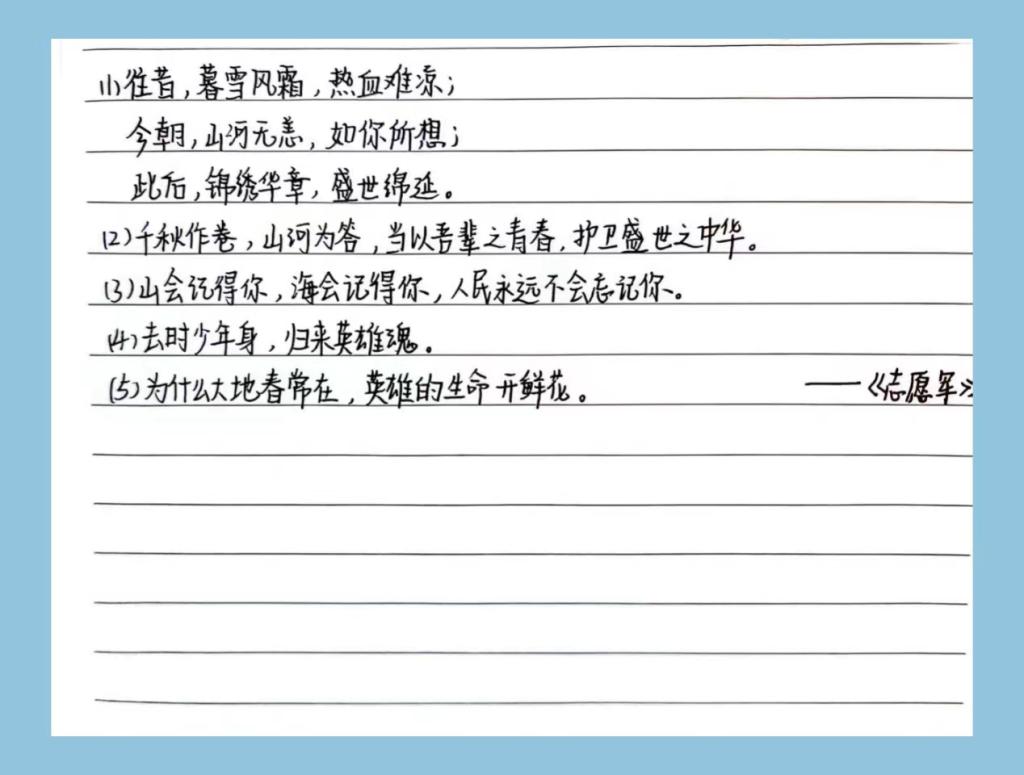 (1)往昔,暮雪风霜,热血难凉;
今朝,山河无恙,如你所想;
此后,锦绣华章,盛世绵延。
(2)千秋作卷,山河为答,当以吾辈之青春,护卫盛世之中华。
(3)山会记得你,海会记得你,人民永远不会忘记你。
(4)去时少年身,归来英雄魂。
(5)为什么大地春常在,英雄的生命开鲜花。 ——《志愿军》